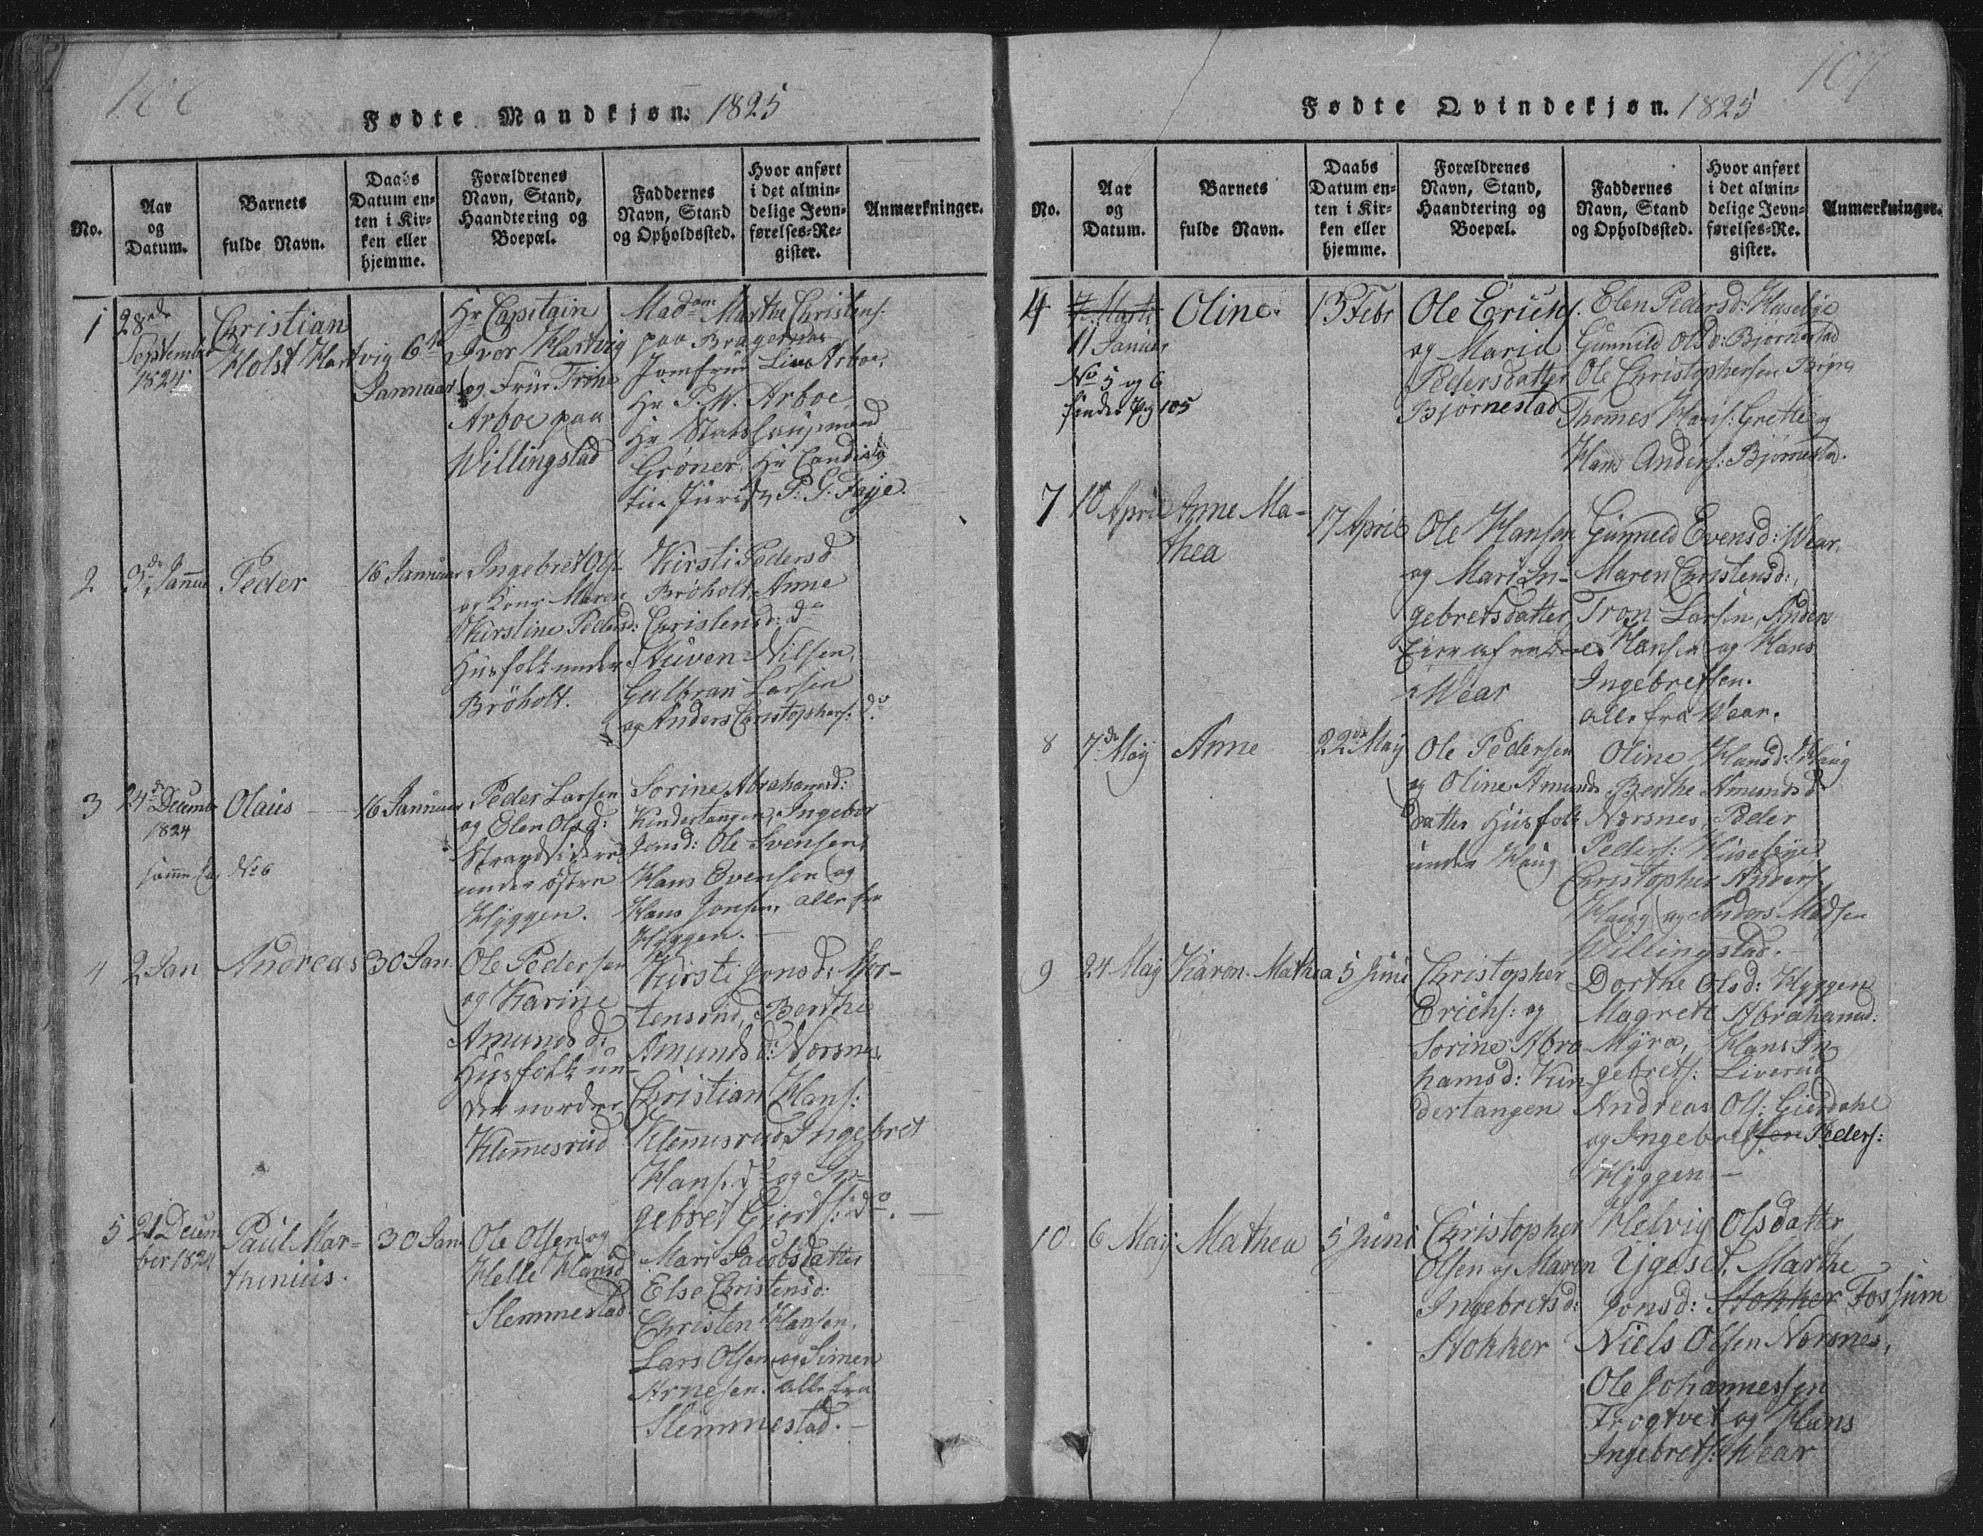 106
Fødte Mandkjøn. 1825
No.
Aar
og
Datum.
Barnets
fulde Navn.
Daabs
Datum en-
ten i Kir-
ken eller
hjemme.
Forældrenes
Navn, Stand,
Haandtering og
Boepæl.
Faddernes
Navn, Stand
og Opholdssted.
Hvor anført
i det almin-
delige Jevn-
førelses-Re-
gister.
Anmærkninger.
1
28de
September
1824
Christian
Holst Hartvig
6te
Januar
Hr Capitain
Iver Hartvig
og Frue Trine
Arboe paa
Willingstad
Madme Marthe Christens:
paa Bragernes
Jomfrue Lina Arboe,
Hr P. W. Arboe
Hr
Grøner, Hr Candida
tus Juris P. T. Faye.
2
3de Januar
Peder
16 Januar
Ingebret Ols.
og Kone Maren
Kirstine Pedersd:
Husfolk under
Brøholt.
Kirsti Pedersd
Brøholt, Anne
Christensd: do
Nilsen,
Gulbran Larsen
og Anders Christophers: do
3
24de Decemb
1824
Olaus
16 Januar
No 6
Peder Larsen
og Elen Olsd:
Strandsiddere
under østre
Hyggen.
Sorine Abrahamsd:
Kindertangen, Ingebor
Jonsd: Ole Svensen,
Hans Evensen og
Hans Jonsen, alle fra
Hyggen.
4
2 Jan
Andreas
30 Jan.
Ole Pedersen
og Karine
Amundsd:
Husfolk un-
der nordre
Klemmesrud
Kirsti Jonsd: Mor-
tensrud, Berthe
Amundsd: Nersnes
Christian Hans:
Klemmesrud Ingebret
Hans. do og In-
gebret Gierts: do.
5
21 Decem
ber 1824
Paul Mar-
thinius.
30 Jan
Ole Olsen og
Helle Hansd
Slemmestad
Mari Jacobsdatter
Else Christensd:
Christen Hansen,
Lars Olsen og Simen
Arnesen. alle fra
Slemmestad.
107
Fødte Qvindekjøn. 1825
No.
Aar
og
Datum.
Barnets
fulde Navn.
Daabs
Datum en-
ten i Kir-
ken eller
hjemme.
Forældrenes
Navn, Stand,
Haandtering og
Boepæl.
Faddernes
Navn, Stand
og Opholdssted.
Hvor anført
i det almin-
delige Jevn-
førelses-Re-
gister.
Anmærkninger.
4
7 Marti
11 Januar
No 5 og 6
findes Pag 105
Oline.
13 Febr
Ole Erichs.
og Maria
Pedersdatter
Bjørnestad
Elen Pedersd: Husebye
Gunnild Olsd: Bjørnestad
Ole Christophersen Bjørn
Thomes Hans: Grette og
Hans Anders: Bjørnesta.
7
10 April
Anne Ma-
thea
17 April
Ole Hansen
og Mari In-
gebretsdatter
Eier af nedre
Wear
Gunnild Evensd: Wear.
Maren Christensd:,
Tron Larsen, Anders
Hansen og Hans
Ingebretsen.
alle fra Wear.
8
7de May
Anne
22de May
Ole Pedersen
og Oline Amunds
datter Husfolk
under Haug
Oline Hansd: Haug
Berthe Amundsd
Nersnes, Peder
Peders: Husebye
Christopher Anders,
Haug og Anders Madsen
Willingstad.
9
24 May
Karen Mathea
5 Juni
Christopher
Erichs: og
Sorine Abra
hamsd: Kin
dertangen
Dorthe Olsd: Hyggen
Magrett Abrahamsd:
Myra, Hans In
gebrets: Liverud
Andreas Ols: Gierdahl
og Ingebretsen Peders:
Hyggen.
10
6 May
Mathea
5 Juni
Christopher
Olsen og Maren
Ingebretsd:
Stokker
Helvig Olsdatter
Ygeset, Marthe
Jonsd: Stokker Fossum
Niels Olsen Nersnes,
Ole Johannessen
Trogtvet og Hans
Ingebrets: Wear